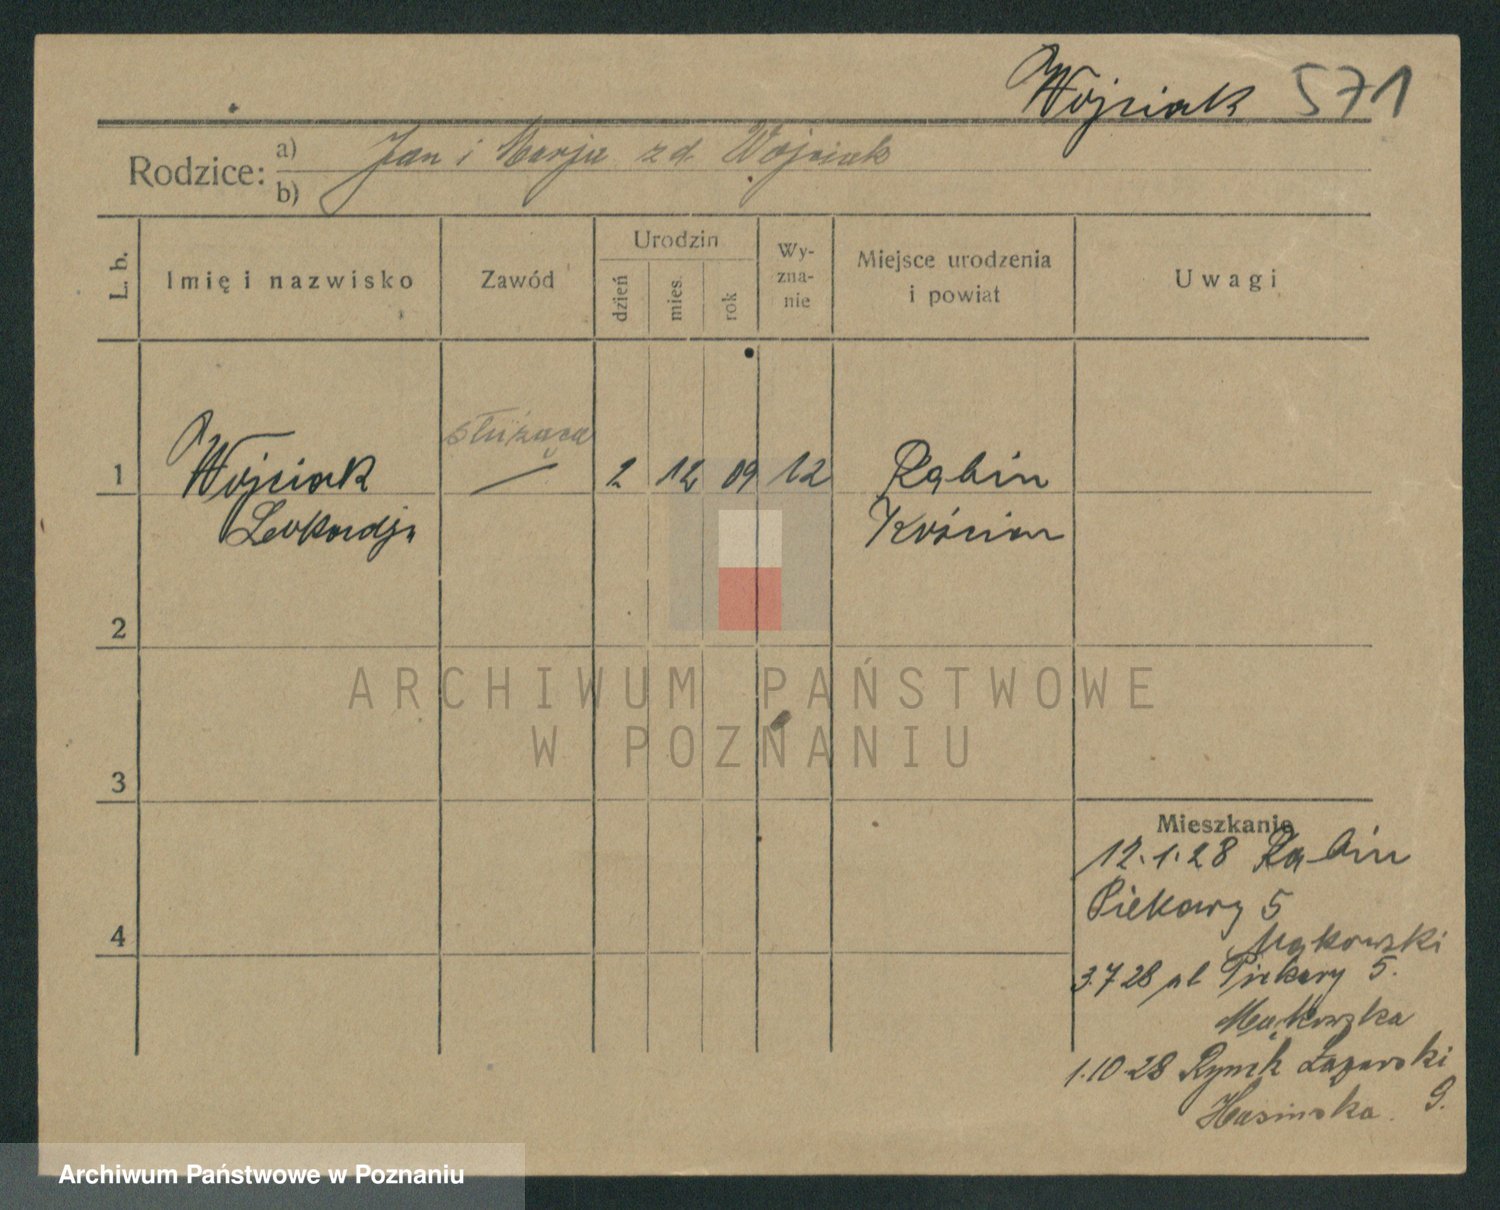 Wojciak 571
Rodzice: a) Jan i Marja zd. Wojciak
b)
L. b. Imię i nazwisko Zawód Urodzin dzień mies. rok Wy-zna-nie Miejsce urodzenia i powiat Uwagi
służąca
1 Wojciak — 2 12 09 12 Rąbin
Leokardja Kościan
2
ARCHIWUM PAŃSTWOWE
W POZNANIU
3
Mieszkanie
12.1.28 Rąbin
Piekary 5
4
Mąkowski
3.7 28 al Piekary 5.
Mąkowska
1.10.28 Rynek Łazarski
9.
Archiwum Państwowe w Poznaniu